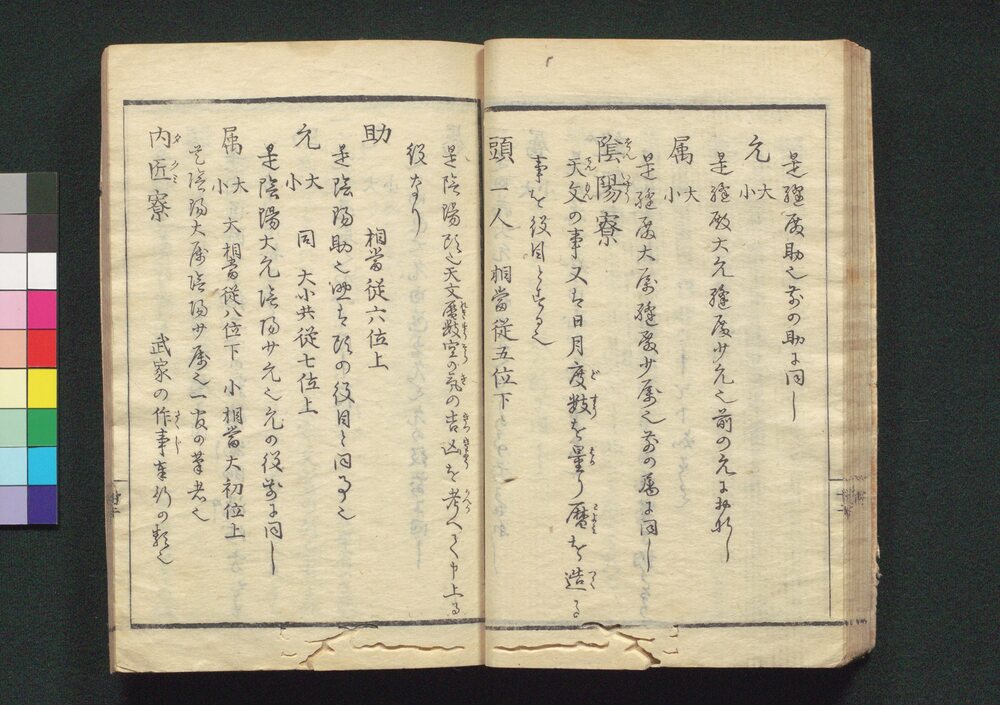 是縫殿助也前の助に同し
允 大小
是縫殿大允縫殿少允也前の允に同し
属 大小
是縫殿大属縫殿少属也前の属に同し
陰陽寮
天文の事又は日月度数を量り暦を造る
事を役目とする也
頭一人 相當従五位下
是陰陽頭也天文暦数空の気の吉凶を考へて申上る
役なり
助 相當従六位上
是陰陽助也助は頭の役目と同事也
允 大小 同 大小共従七位上
是陰陽大允陰陽少允也允の役前に同し
属 大小 大相當従八位下 小相當大初位上
是陰陽大属陰陽少属也 の筆者也
内匠寮 武家の作事奉行の類也